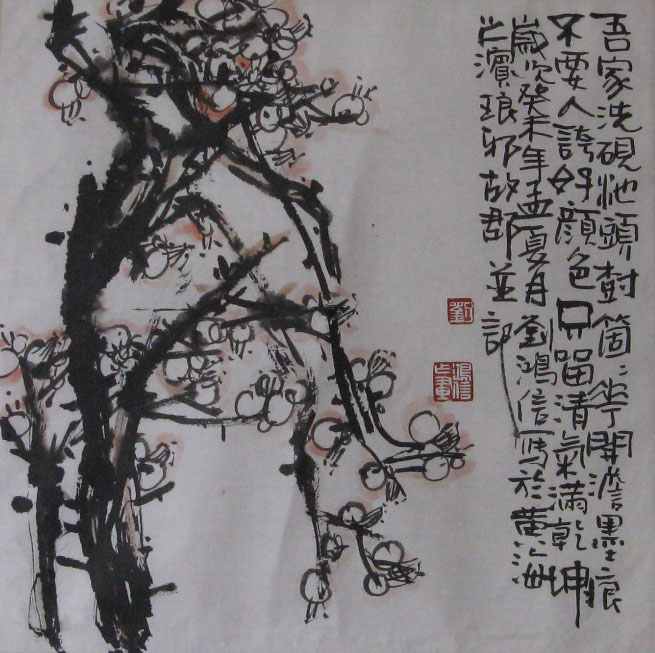 吾家洗硯池頭樹箇〻花開澹墨痕
不要人誇好顔色只留清氣滿乾坤
歲次癸未年孟夏月劉鴻信寫於黄海
之濱琅邪故郡並記
劉
鴻信之畫